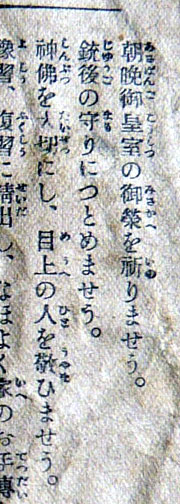 朝晩御皇室の御榮を祈りませう。
銃後の守りにつとめませう。
神佛を大切にし、目上の人を敬ひませう。
豫習、復習に精出し、なほよく家のお手傳